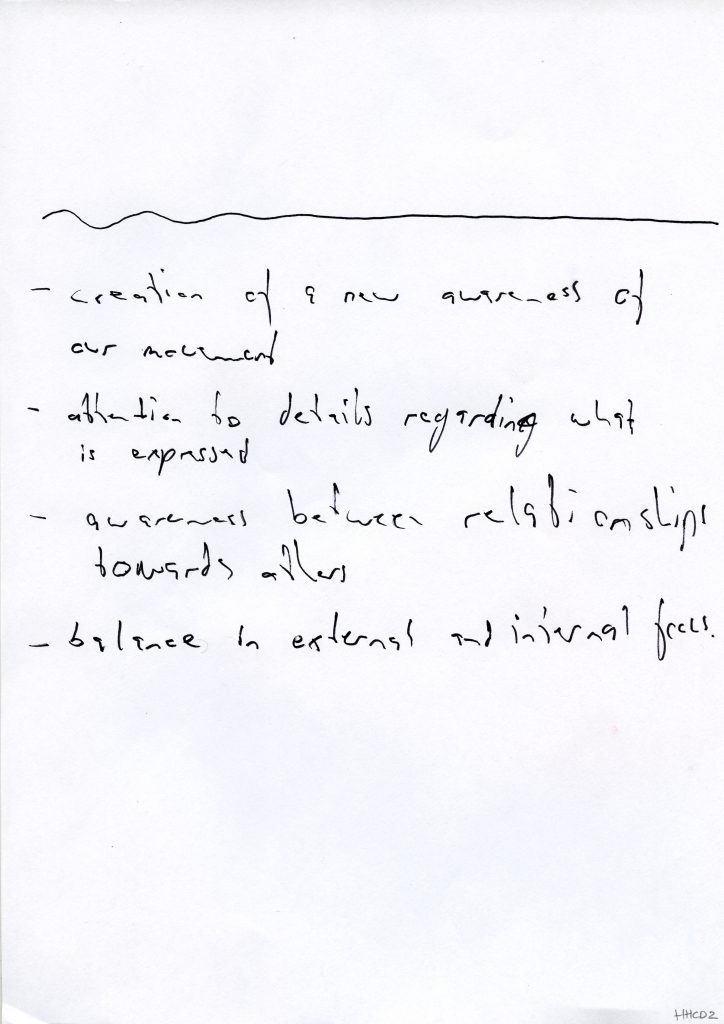 - creation of a new awareness of
our movement
- attention to details regarding what
is expressed
- awareness between relationships
towards others
- balance in external and internal focus.
HHCD2